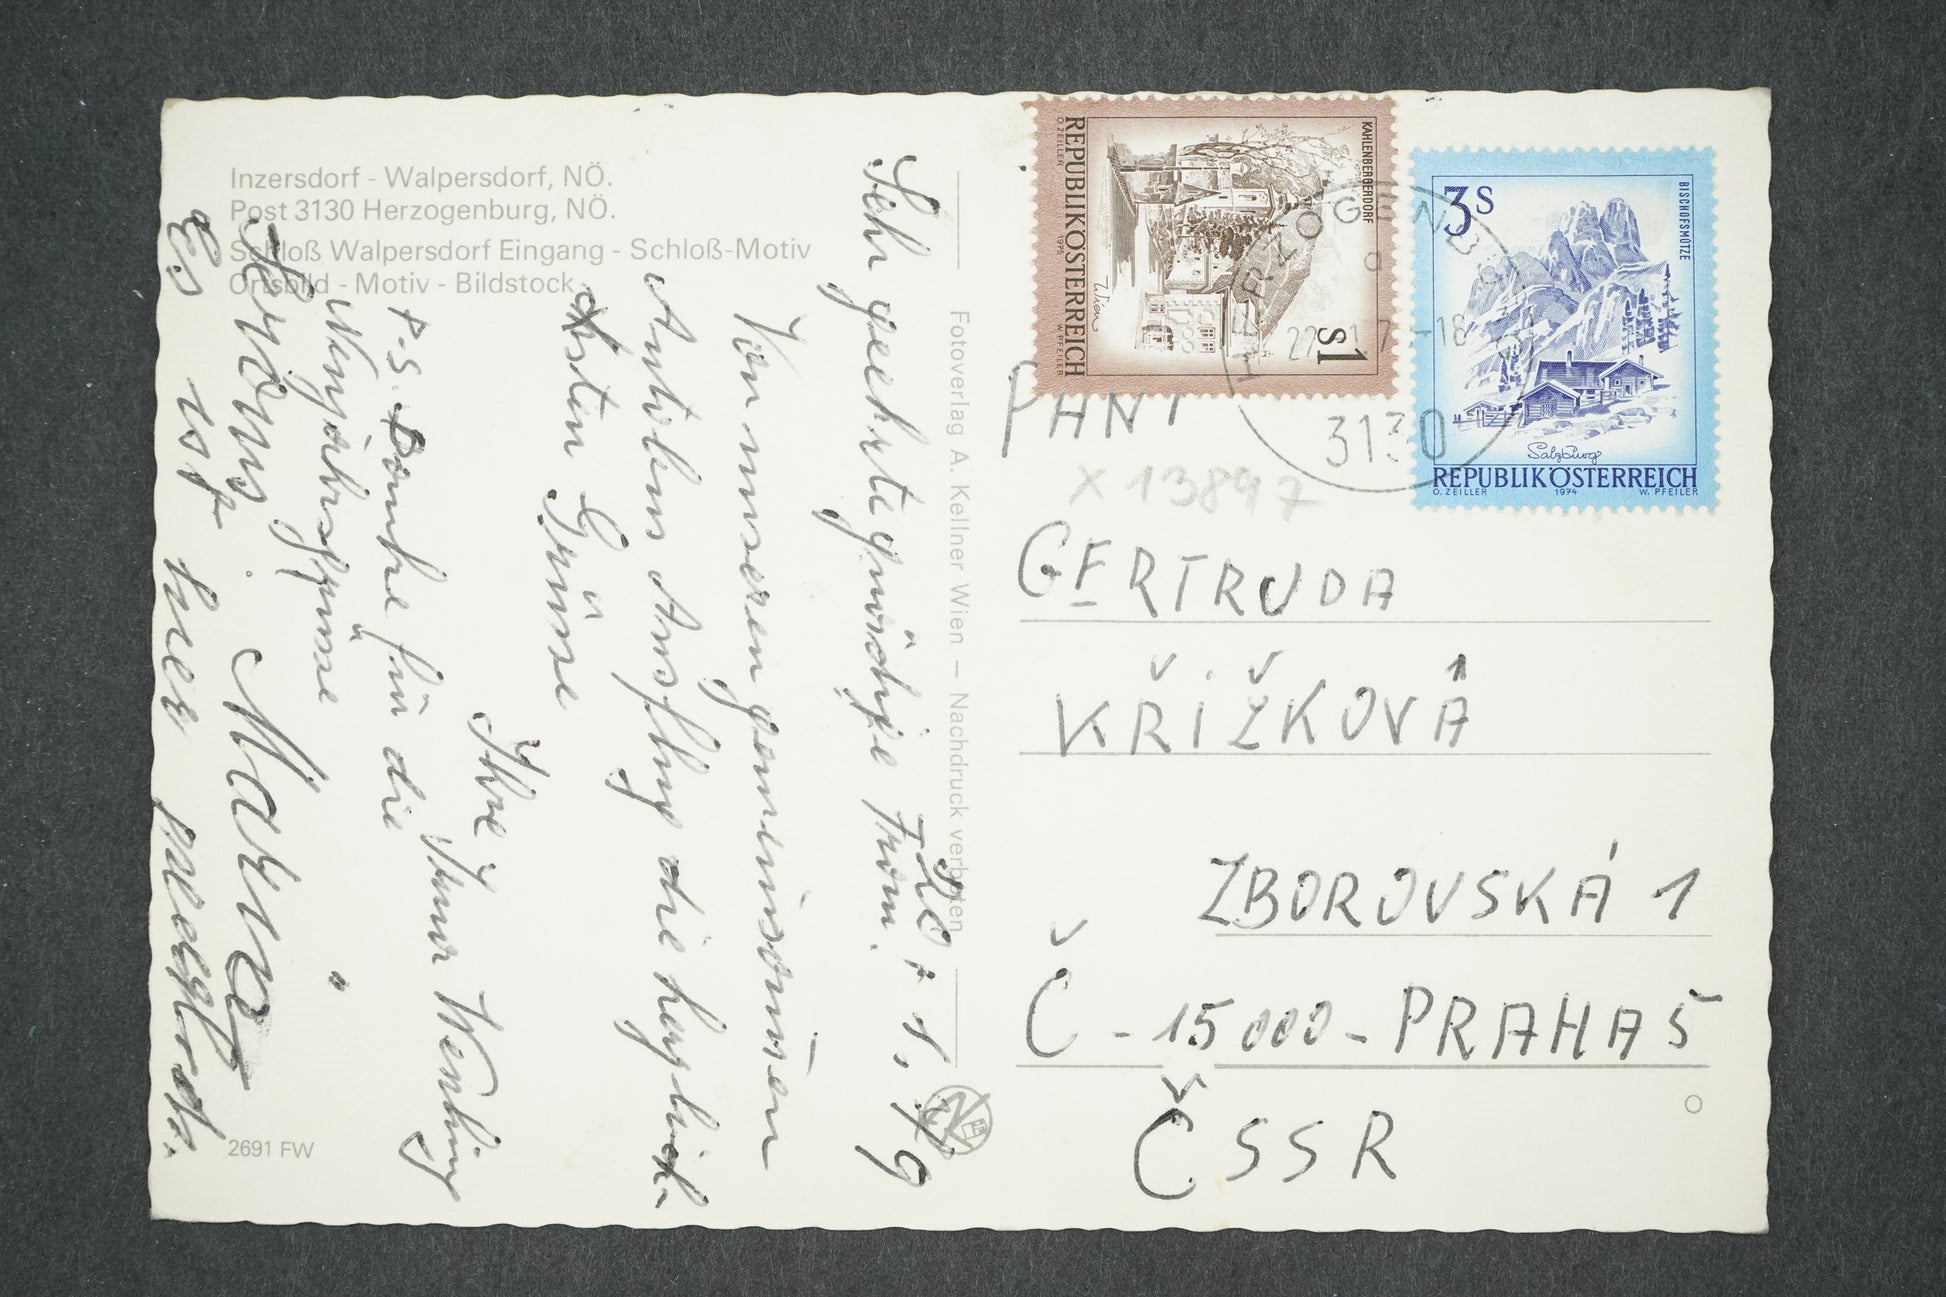 Inzersdorf - Walpersdorf, NÖ.
Post 3130 Herzogenburg, NÖ.
Schloß Walpersdorf Eingang - Schloß-Motiv
Ortsbild - Motiv - Bildstock
Sehr geehrte gnädige Frau.
Von unseren gemeinsamen
Antiken Ausflug die herzlich-
sten Grüsse
Ihre
P.S. Danke für die
Neujahrsgrüsse
Maria
Es ist hier
2691 FW
Fotoverlag A. Kellner Wien – Nachdruck verboten
KAHLENBERGERDORF
S1
Wien
REPUBLIK ÖSTERREICH
O. ZEILLER 1975 W. PFEILER
3S
BISCHOFSMÜTZE
Salzburg
REPUBLIK ÖSTERREICH
O. ZEILLER 1974 W. PFEILER
HERZOGENBURG
3130
PANÍ
X 13897
GERTRUDA
KŘIŽKOVÁ
ZBOROVSKÁ 1
Č - 15000 - PRAHA 5
ČSSR